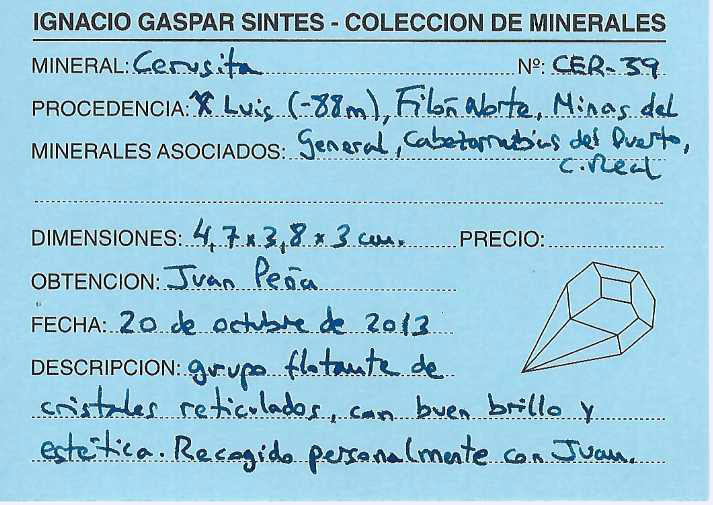 IGNACIO GASPAR SINTES - COLECCION DE MINERALES
MINERAL: Cerusita Nº: CER-39
PROCEDENCIA: X Luis (-88m), Filón Norte, Minas del
MINERALES ASOCIADOS: General, Cabezarrubias del Puerto,
C. Real
DIMENSIONES: 4,7 x 3,8 x 3 cm. PRECIO:
OBTENCION: Juan Peña
FECHA: 20 de octubre de 2013
DESCRIPCION: grupo flotante de
cristales reticulados, con buen brillo y
estética. Recogido personalmente con Juan.